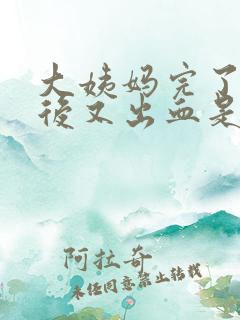 大姨妈完了
後又出血是
阿拉奇
未经同意禁止转载